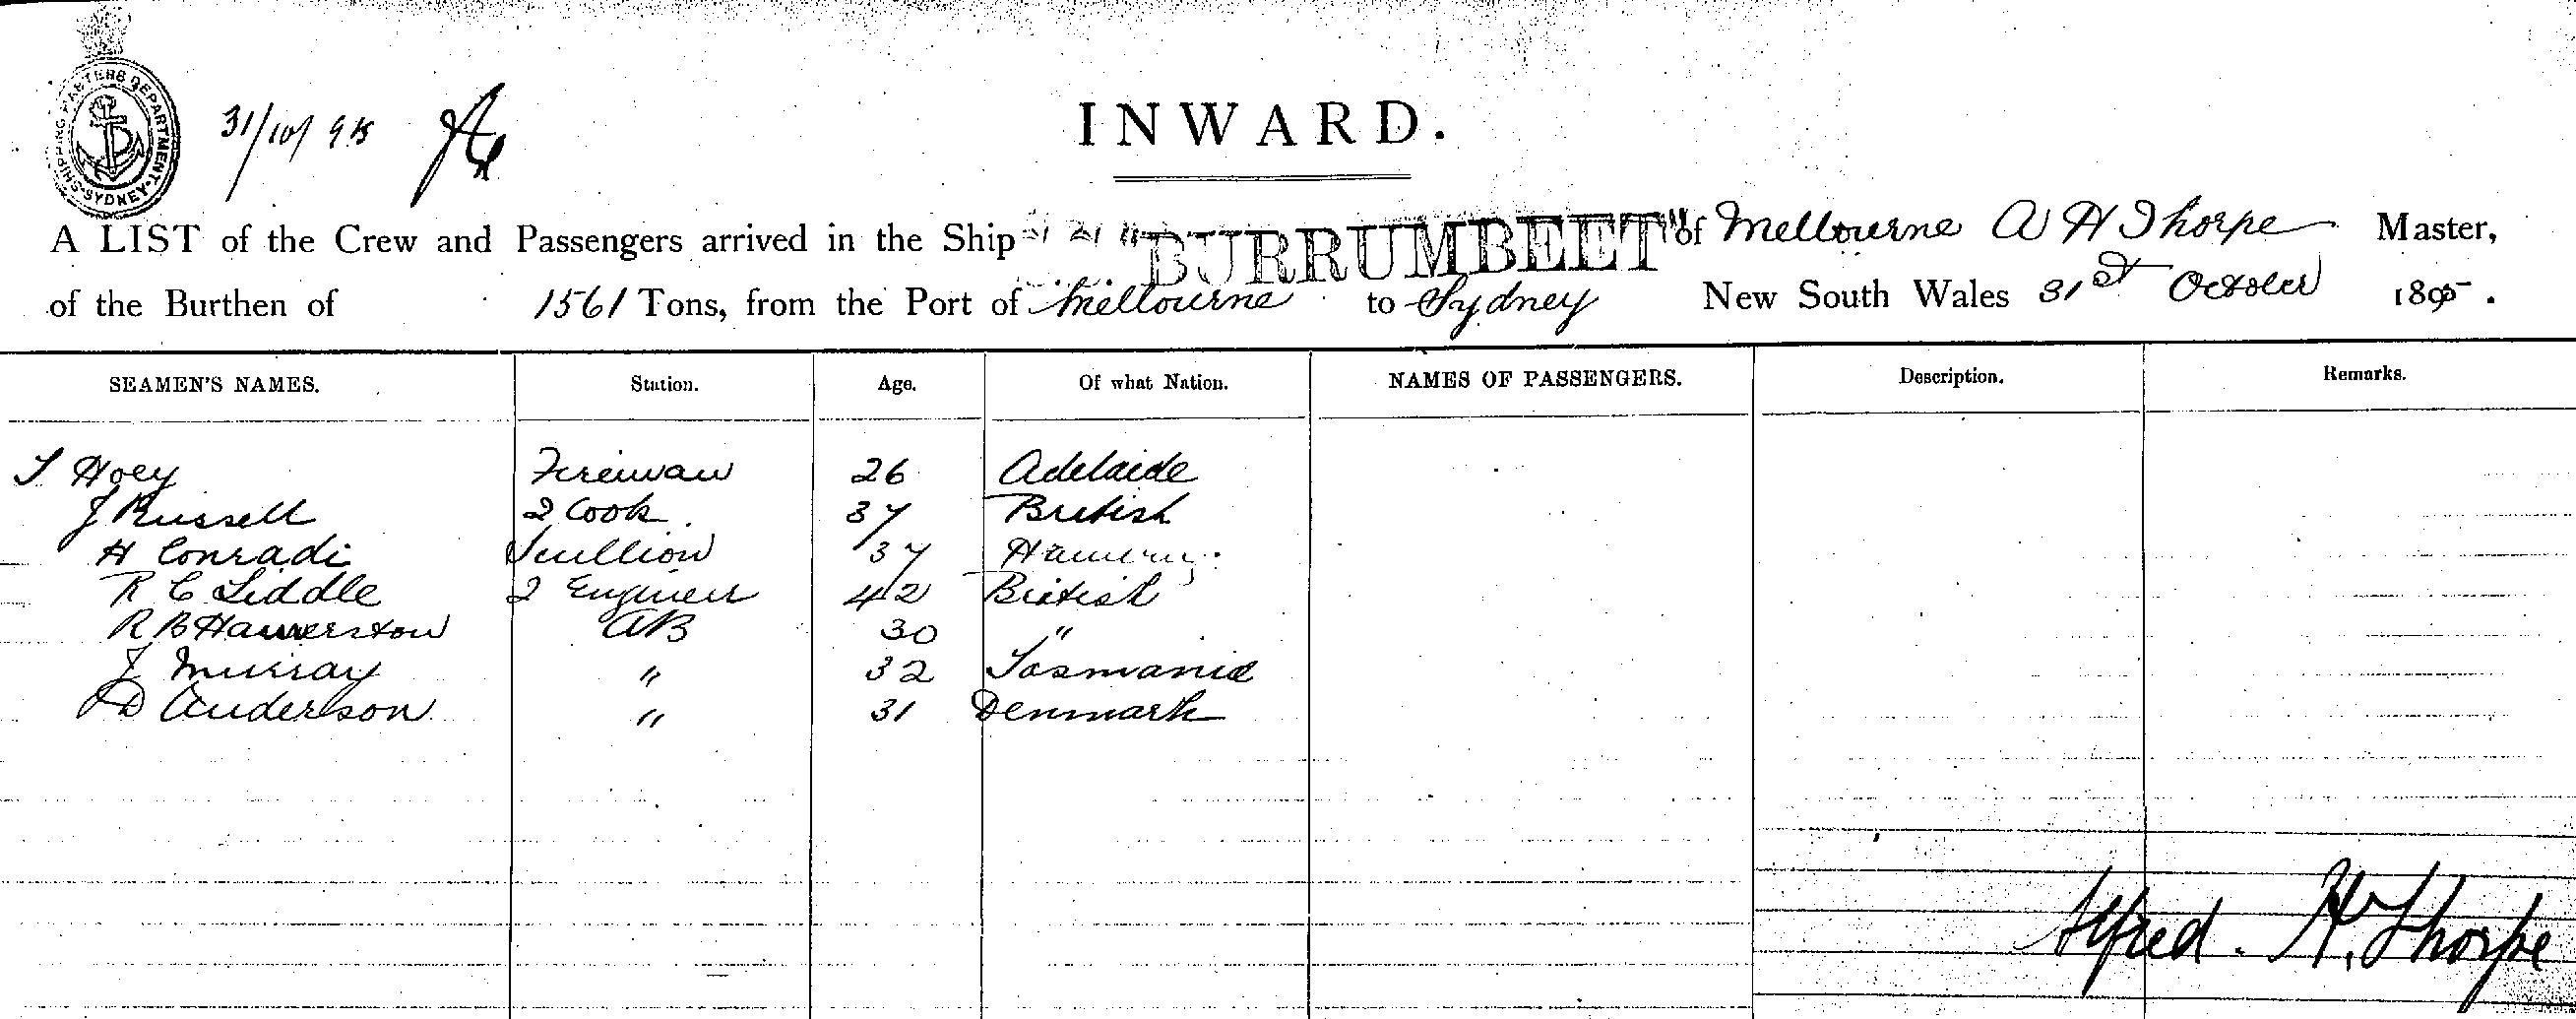 SHIPPING MASTERS DEPARTMENT. SYDNEY
31/10/95
INWARD.
A LIST of the Crew and Passengers arrived in the Ship "BURRUMBEET" of Melbourne A H Thorpe Master,
of the Burthen of 1561 Tons, from the Port of Melbourne to Sydney New South Wales 31st October 1895.
SEAMEN'S NAMES. Station. Age. Of what Nation. NAMES OF PASSENGERS. Description. Remarks.
T Hoey Fireman 26 Adelaide
J Russell 2 Cook 37 British
H Conradi Scullion 37
R C Liddle 2 Engineer 42 British
R B AB 30 "
J Murray " 32 Tasmania
D Anderson " 31 Denmark
Alfred. H. Thorpe